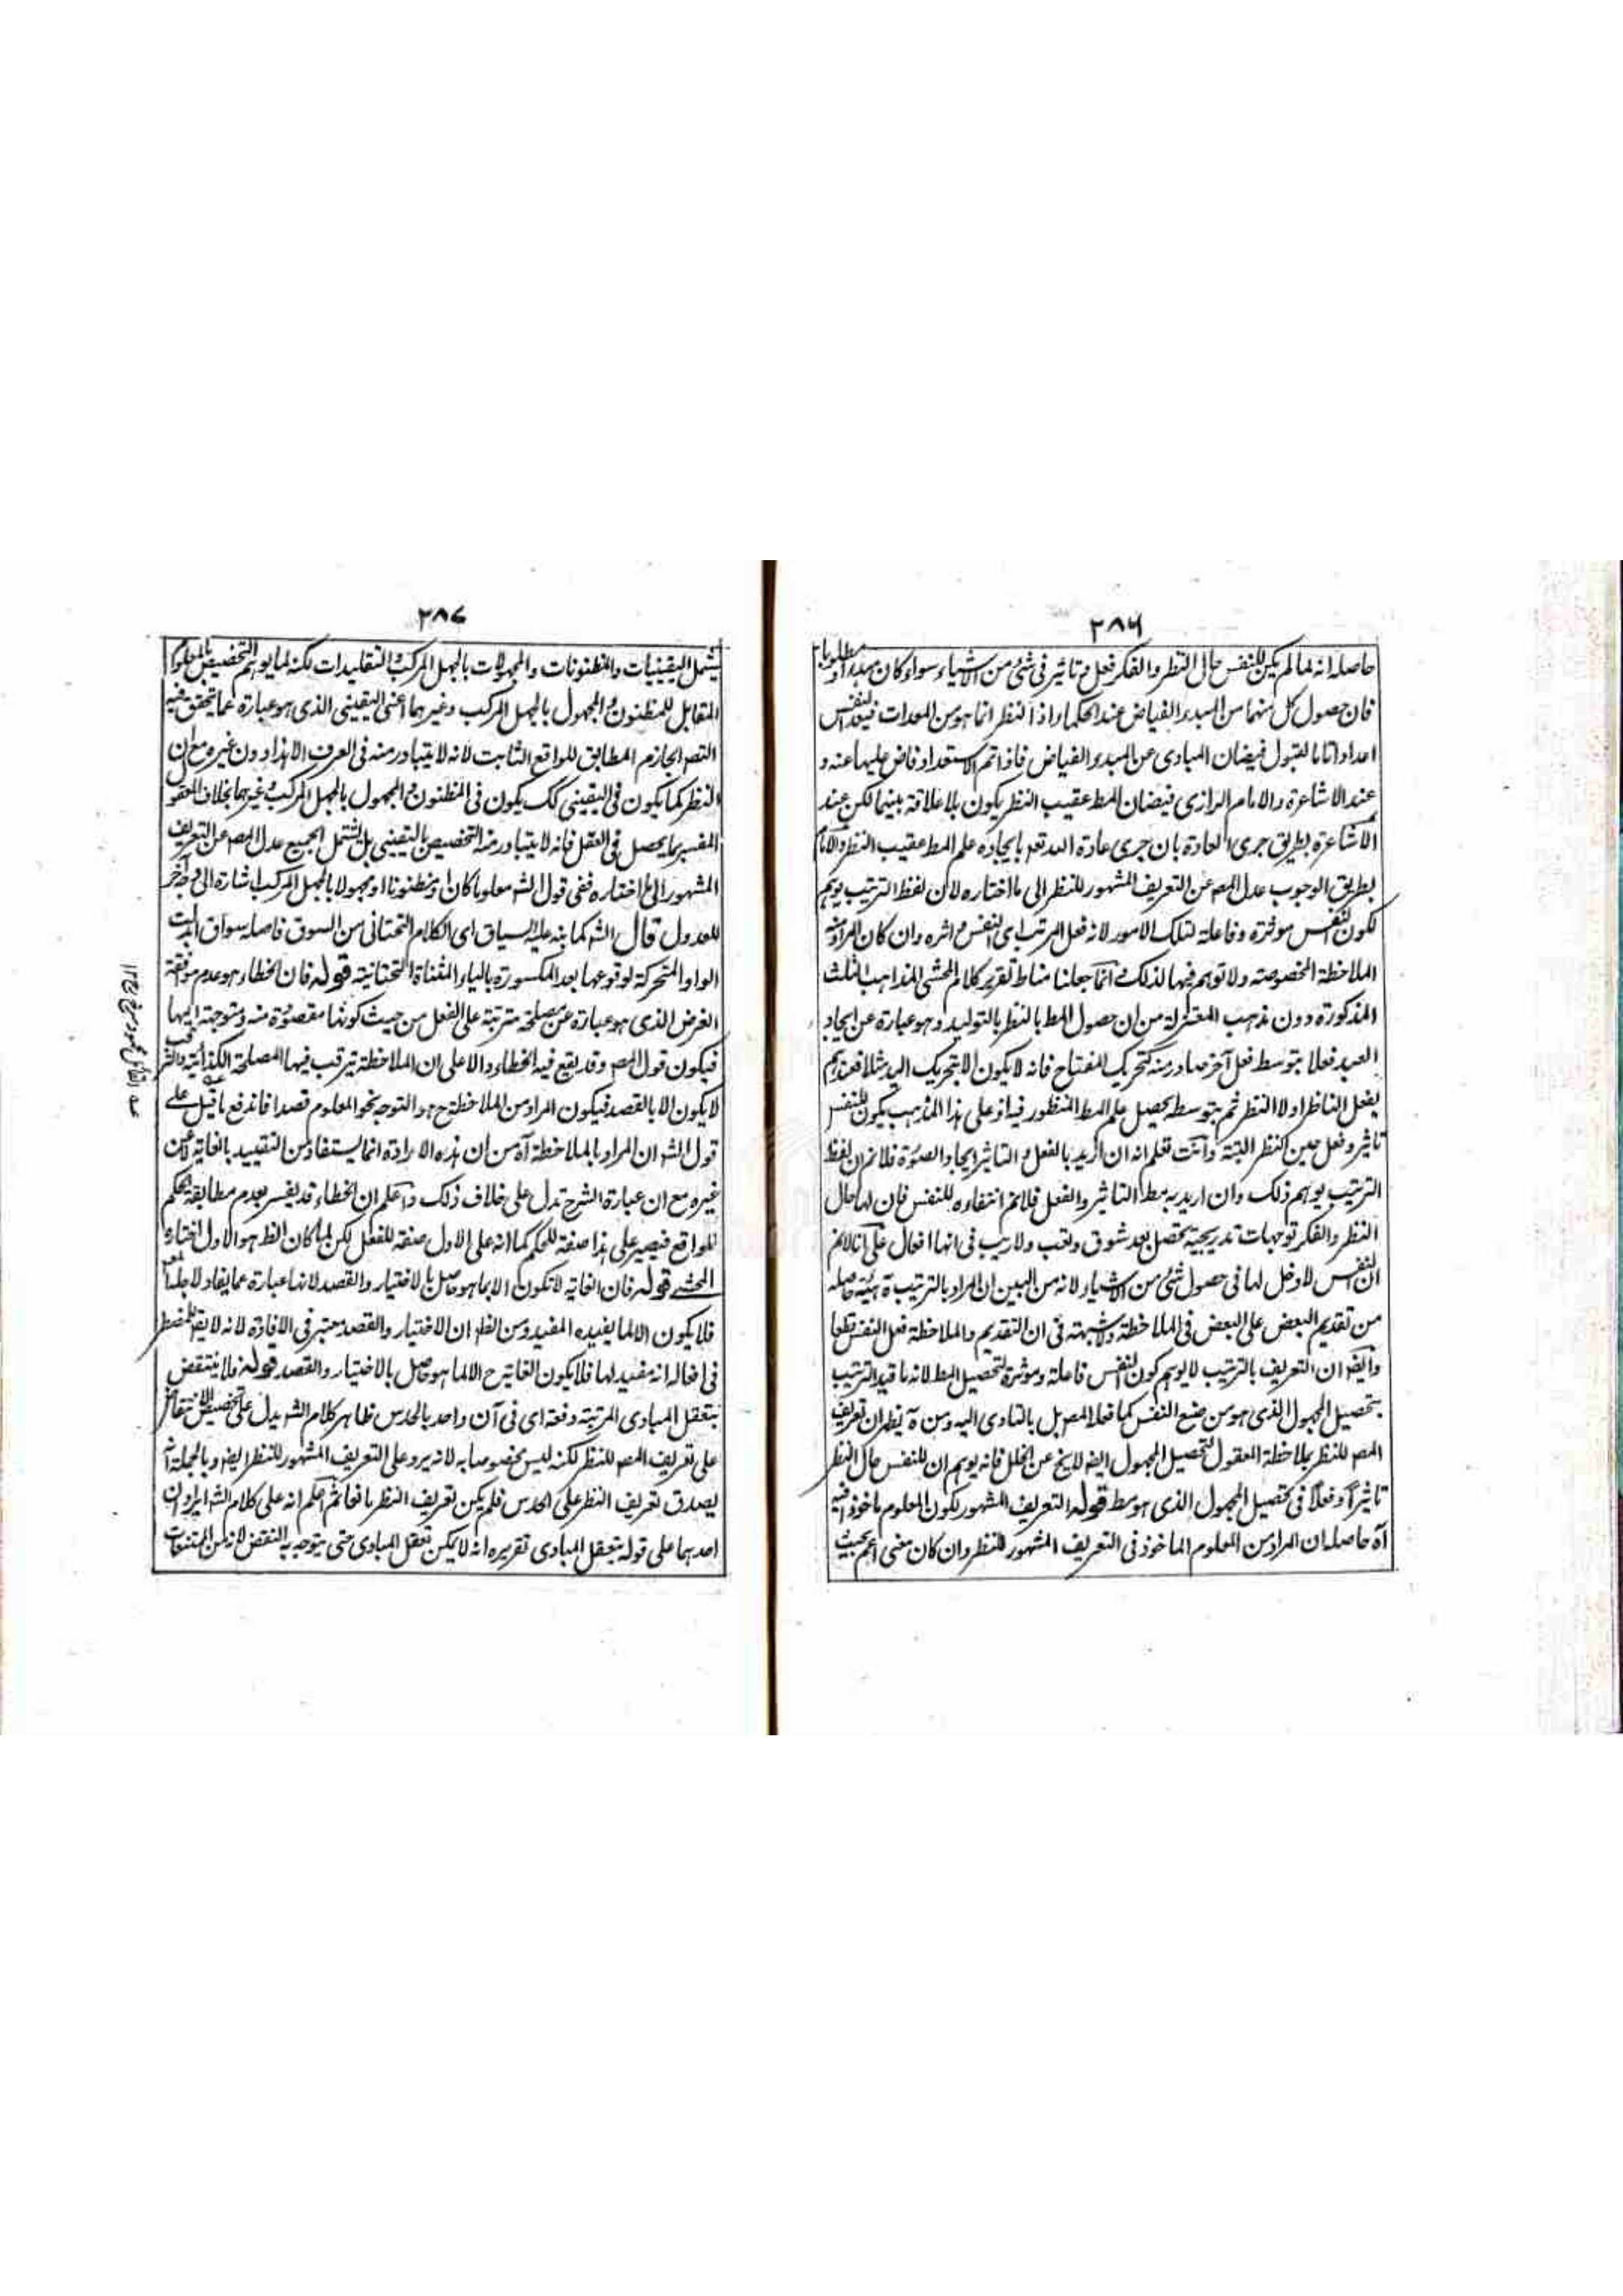 ٢٨٦
حاصله انه لما لم يكن للنفس حال النظر والفكر فعل وتاثير فى شئ من الاشياء سواء كان مبدء او مطلوبا
فان حصول كل منهما من المبدء الفياض عند الحكماء واذ النظر انما هو من المعدات فيعد النفس
اعدادا تاما لقبول فيضان المبادى عن المبدء الفياض فاذا تم الاستعداد فاض عليها عنه و
عند الاشاعرة والامام الرازى فيضان المط عقيب النظر يكون بلا علاقة بينهما لكن عند
الاشاعرة بطريق جرى العادة بان جرى عادة الله تعم بايجاده علم المط عقيب النظر والامام
بطريق الوجوب عدل المص عن التعريف المشهور للنظر الى ما اختاره لان لفظ الترتيب يوهم
لكون النفس موثرة وفاعلة لتلك الامور لانه فعل المرتب اى النفس واثره وان كان المراد منه
الملاحظة المخصوصة ولا توهم فيها لذلك وانما جعلنا مناط تقرير كلام المحشى المذاهب الثلث
المذكورة دون مذهب المعتزلة من ان حصول المط بالنظر بالتوليد وهو عبارة عن ايجاد
العبد فعلا بتوسط فعل آخر صادر منه كتحريك المفتاح فانه لا يكون الا بتحريك اليد مثلا فعندهم
يفعل الناظر اولا النظر ثم بتوسطه يحصل علم المط المنظور فيه اذ على هذا المذهب يكون للنفس
تاثير وفعل حين النظر البتة وانت تعلم انه ان اريد بالفعل والتاثير ايجاد الصورة فلانم ان لفظ
الترتيب يوهم ذلك وان اريد به مط التاثير والفعل فلانم انتفاءه للنفس فان لها حال
النظر والفكر توجهات تدريجية تحصل بعد شوق وتعب ولاريب فى انها افعال على انا لانم
ان النفس لا دخل لها فى حصول شئ من الاشياء ولانه من البين ان المراد بالترتيب ة هيئة حاصله
من تقديم البعض على البعض فى الملاحظة ولاشبهة فى ان التقديم والملاحظة فعل النفس قطعا
وايضا ان التعريف بالترتيب لا يوهم كون النفس فاعلة وموثرة لتحصيل المط لانه ما قيد الترتيب
بتحصيل المجهول الذى هو من صنع النفس كما فعله المص بل بالتادى اليه ومن ة يظهر ان تعريف
المص للنظر بملاحظة المعقول لتحصيل المجهول ايضا لايخ عن الخلل فانه يوهم ان للنفس حال النظر
تاثيرا وفعلا فى تحصيل المجهول الذى هو مط قوله التعريف المشهور لكون المعلوم ماخوذا فيه
آه حاصله ان المراد من المعلوم الماخوذ فى التعريف المشهور للنظر وان كان معنى اعم بحيث
٢٨٧
يشمل اليقينيات والمظنونات والمجهولات بالجهل المركب والتقليدات لكنه لما يوهم التخصيص بالمعلوم
المقابل للمظنون والمجهول بالجهل المركب وغيرهما اعنى اليقينى الذى هو عبارة عما يتحقق فيه
التص الجازم المطابق للواقع الثابت لانه لا يتبادر منه فى العرف الا هذا دون غيره مع ان
النظر كما يكون فى اليقينى كك يكون فى المظنون والمجهول بالجهل المركب وغيرهما بخلاف المعقول
المفسر بما يحصل فى العقل فانه لا يتبادر منه التخصيص باليقينى بل يشتمل الجميع عدل المص عن التعريف
المشهور الى ما اختاره ففى قول الشه معلوما كان او مظنونا او مجهولا بالجهل المركب اشارة الى وجه آخر
للعدول قال الشه كما ينبه عليه السياق اى الكلام التحتانى من السوق فاصله سواق ابدلت
الواو المتحركة لوقوعها بعد المكسورة بالياء المثناة التحتانية قوله فان الخطاء هو عدم موافقة
الغرض الذى هو عبارة عن مصلحة مترتبة على الفعل من حيث كونها مقصودة منه ومتوجهة اليها
فيكون قول المص وقد يقع فيه الخطاء دالا على ان الملاحظة تترقب فيها المصلحة الكذائية والترقب
لا يكون الا بالقصد فيكون المراد من الملاحظة ح هو التوجه نحو المعلوم قصدا فاندفع ما قيل على
قول الشه ان المراد بالملاحظة آه من ان هذه الارادة انما يستفاد من التقييد بالغاية لا من
غيره مع ان عبارة الشرح تدل على خلاف ذلك واعلم ان الخطاء قد يفسر بعدم مطابقة الحكم
للواقع فيصير على هذا صفة للحكم كما انه على الاول صفة للفعل لكن لما كان الظ هو الاول اختاره
المحشى قوله فان الغاية لا تكون الا بما هو حاصل بالاختيار والقصد لانها عبارة عما يفاد لاجله
فلا يكون الا لما يفيده المفيد ومن الظ ان الاختيار والقصد معتبر فى الافادة لانه لا يقا للمضطر
فى افعاله انه مفيد لها فلا يكون الغاية ح الا لما هو حاصل بالاختيار والقصد قوله فلا ينتقض
بتعقل المبادى المرتبة دفعة اى فى آن واحد بالحدس ظاهر كلام الشه يدل على تخصيص الانتقاض
على تعريف المص للنظر لكنه ليس مخصوصا به لانه يرد على التعريف المشهور للنظر ايضا وبالجملة انه
يصدق تعريف النظر على الحدس فلم يكن تعريف النظر مانعا ثم اعلم انه على كلام الشه ايرادان
احدهما على قوله بتعقل المبادى تقريره انه لا يمكن تعقل المبادى حتى يتوجه به النقض لانه من الممتنعات